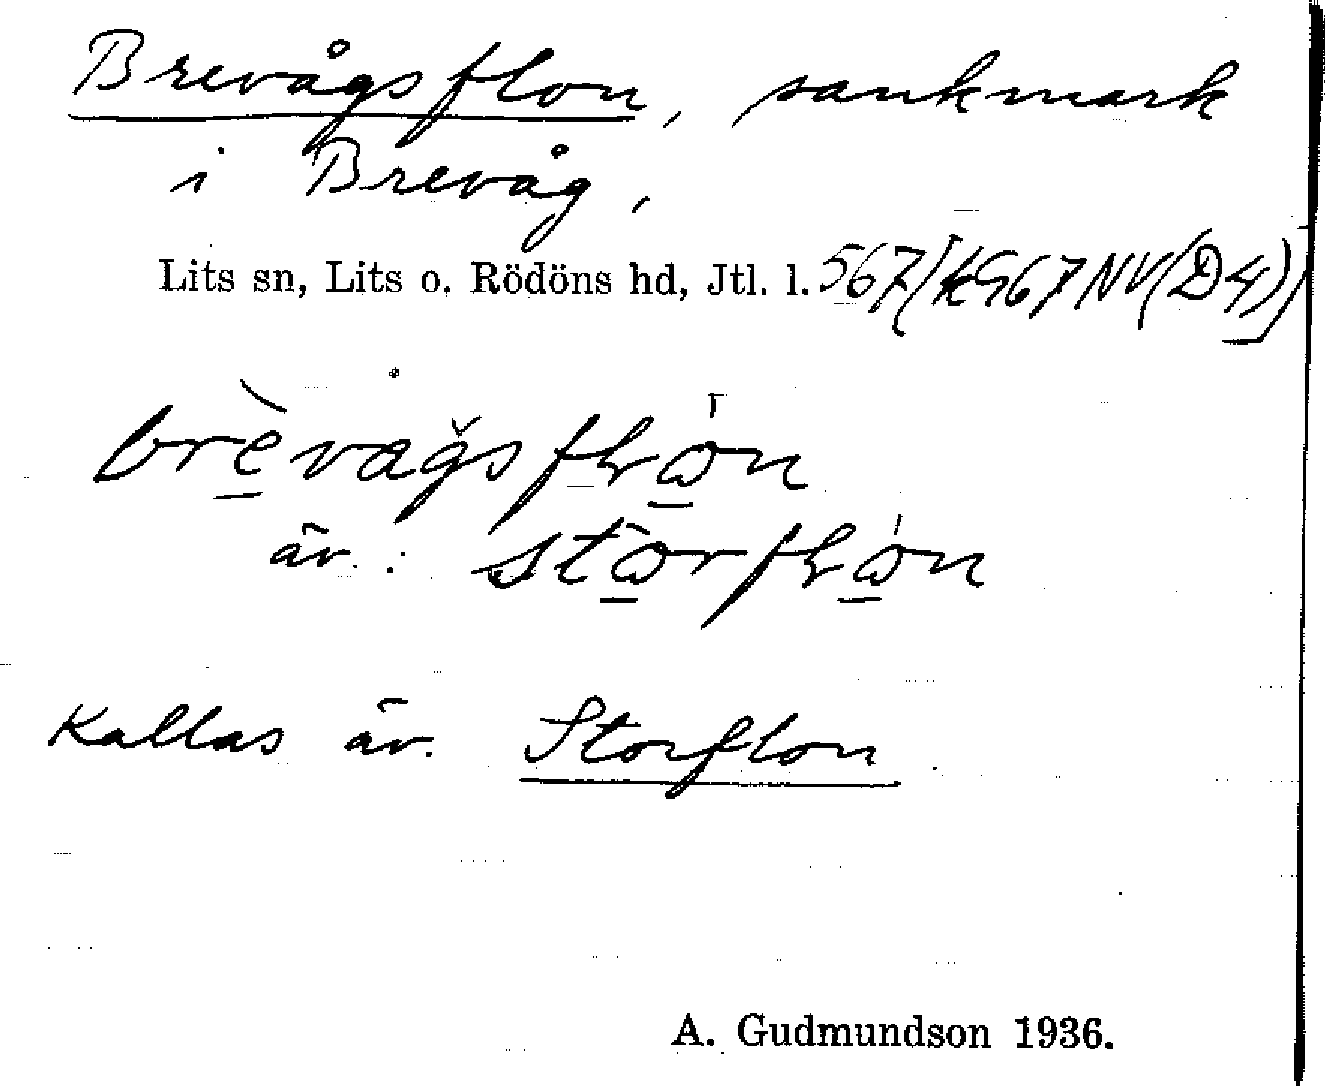 Brevågsflon, sankmark
i Brevåg,
Lits sn, Lits o. Rödöns hd, Jtl. l. 567(K567NV(D4))
brèvågsflωn
äv.: stωrflωn
Kallas äv. Storflon
A. Gudmundson 1936.